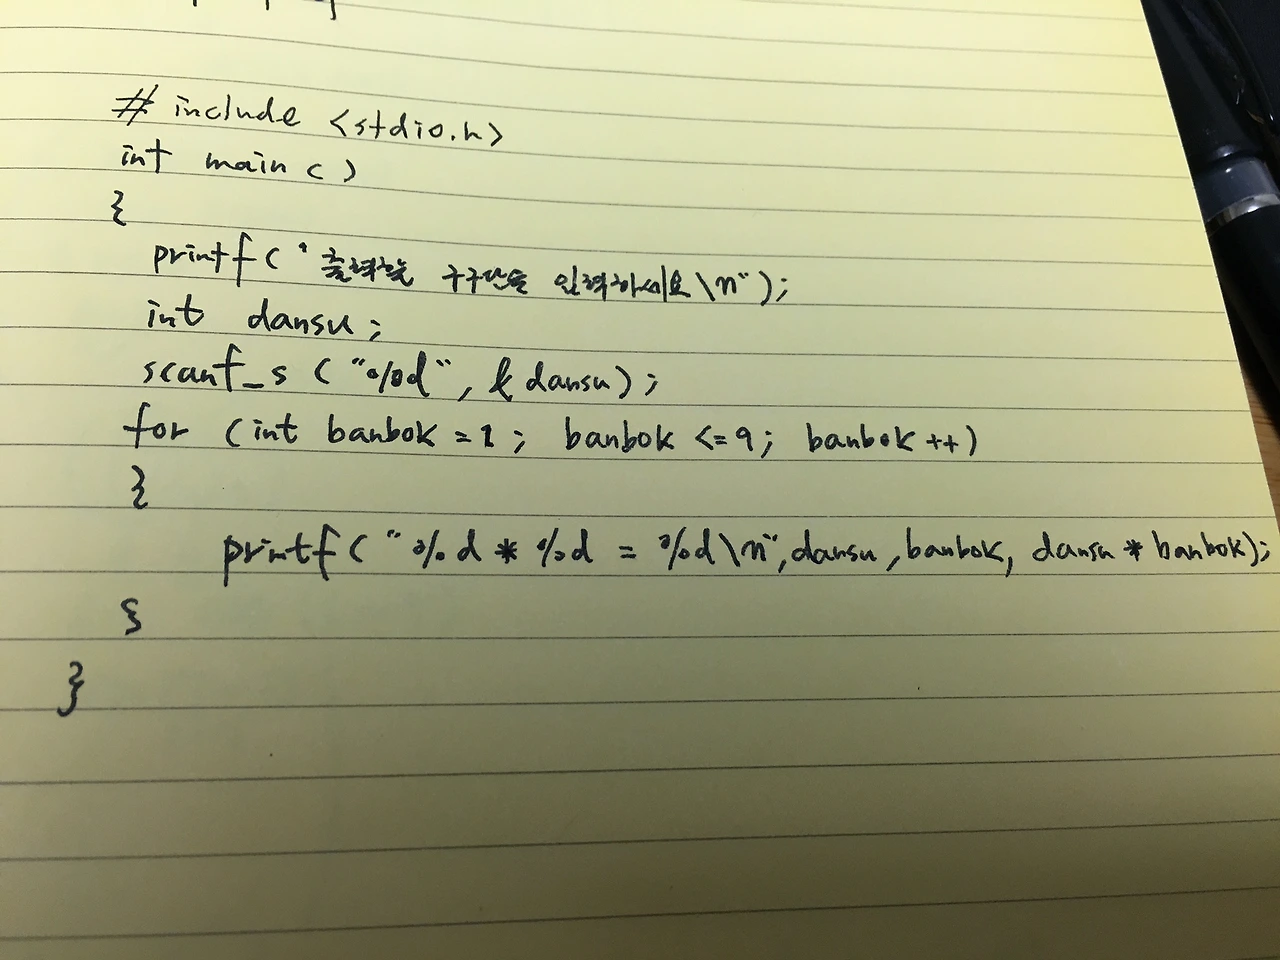 # include <stdio.h>
int main ( )
{
printf ( " 출력할 구구단을 입력하세요 \n" );
int dansu ;
scanf_s ( "%d" , & dansu ) ;
for (int banbok = 1 ; banbok <= 9 ; banbok ++)
{
printf ( " %d * %d = %d \n" , dansu , banbok, dansu * banbok);
}
}